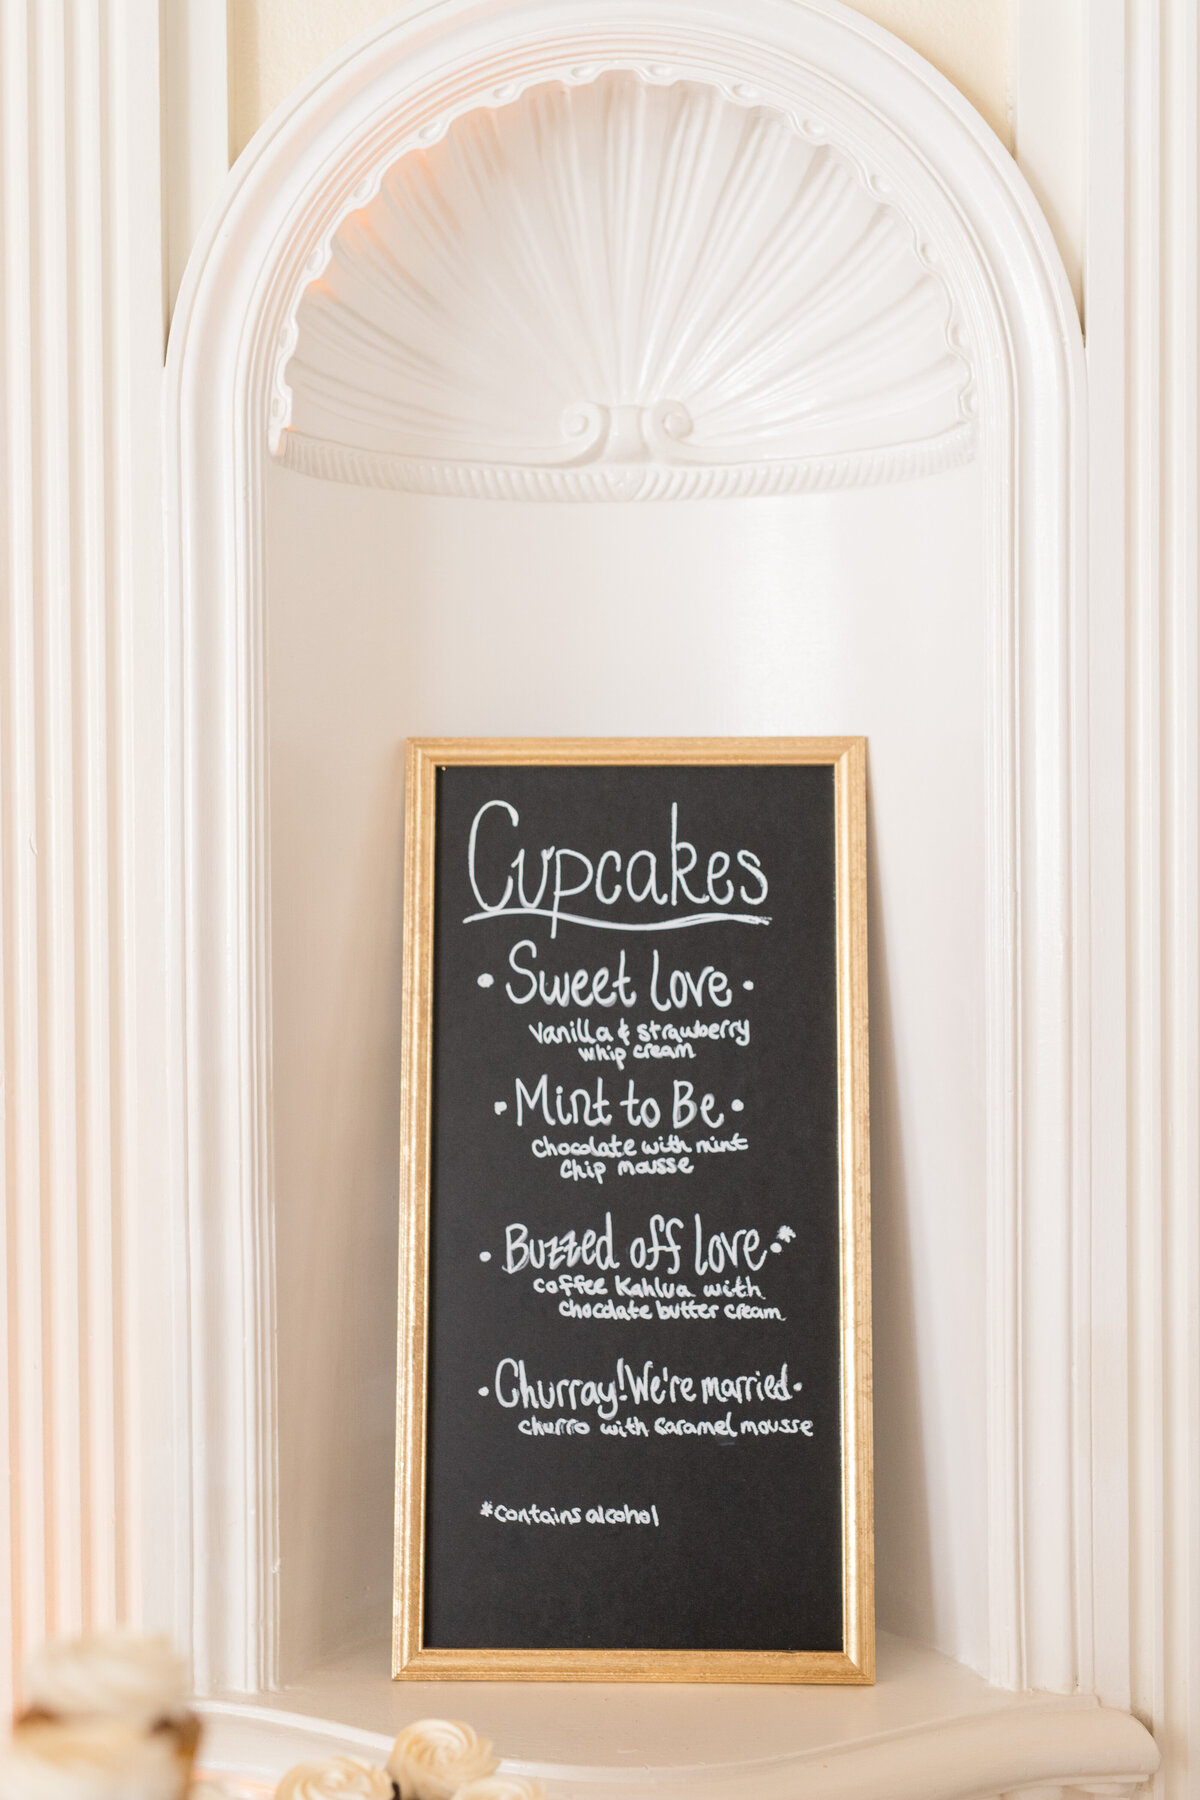 Cupcakes
• Sweet Love •
Vanilla & strawberry
whip cream
• Mint to Be •
Chocolate with mint
Chip mousse
• Buzzed off Love •*
coffee Kahlua with
chocolate butter cream
• Churray! We're married •
churro with caramel mousse
*contains alcohol